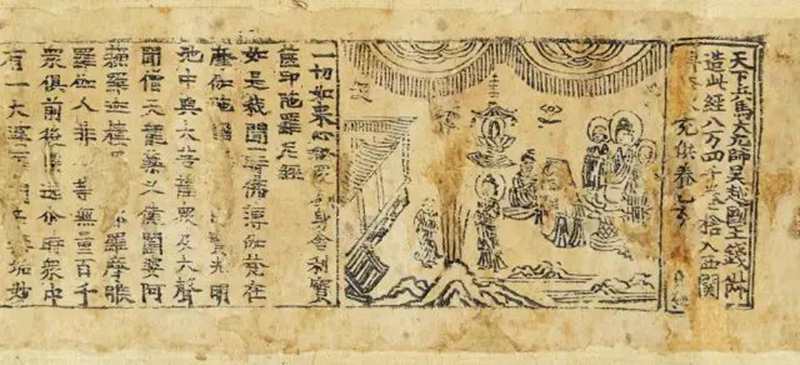 天下兵馬大元帥吳越國王錢俶
造此經八万四千卷捨入西關
充供養乙亥
一切如來心身舍利寶
篋印陀羅尼經
如是我聞一時佛薄伽梵在
摩伽陀光明
池中與大菩薩衆及大聲
聞僧天龍藥叉健闥婆阿
蘇羅迦樓羅摩睺
羅伽人非等無量百千
衆俱前後遶爾時衆中
有一大婆門無垢妙